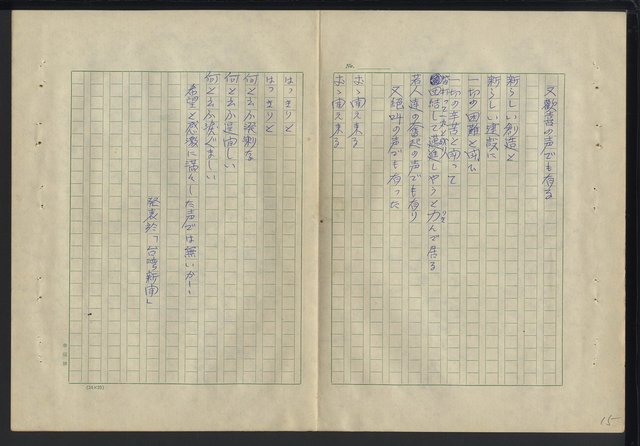 No.
又歓喜の声でも有る
新らしい創造と
新らしい建設に
一切の困難と闘ひ
一切の辛苦と闘って
団結して邁進しやうと力んで居る
若人達の奮起の声でも有り
又絶叫の声でも有った
おゝ聞え来る
おゝ聞え来る
はっきりと
はっきりと
何と云ふ溌剌な
何と云ふ逞しい
何と云ふ凛ゞましい
希望と感激に満々した声では無いか！
発表於「台湾新聞」
15